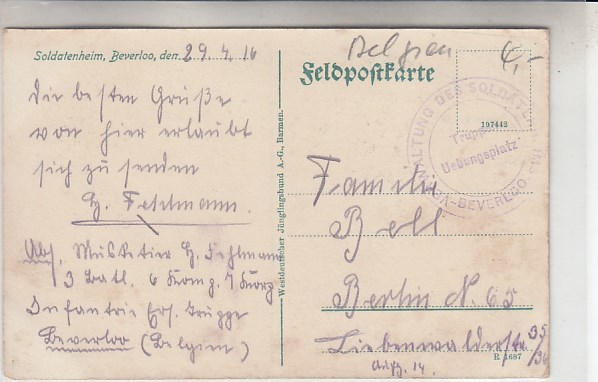 Soldatenheim, Beverloo, den 29. 4. 16
die besten Grüße
von hier erlaubt
sich zu senden
H. Fehlmann.
Abs. Musketier H. Fehlmann
3 Batl. 6 Komp. 7 Korp
Infantrie Ers. Truppe
Beverloo (Belgien)
Westdeutscher Jünglingsbund A.-G., Barmen.
Belgien
4,-
Feldpostkarte
197442
VERWALTUNG DES SOLDATENHEIMS
Truppen
Uebungsplatz
BEVERLOO
Familie
Bell
Berlin N. 65
Liebenwalderstr. 35/36
Aufg. 14.
R 1687